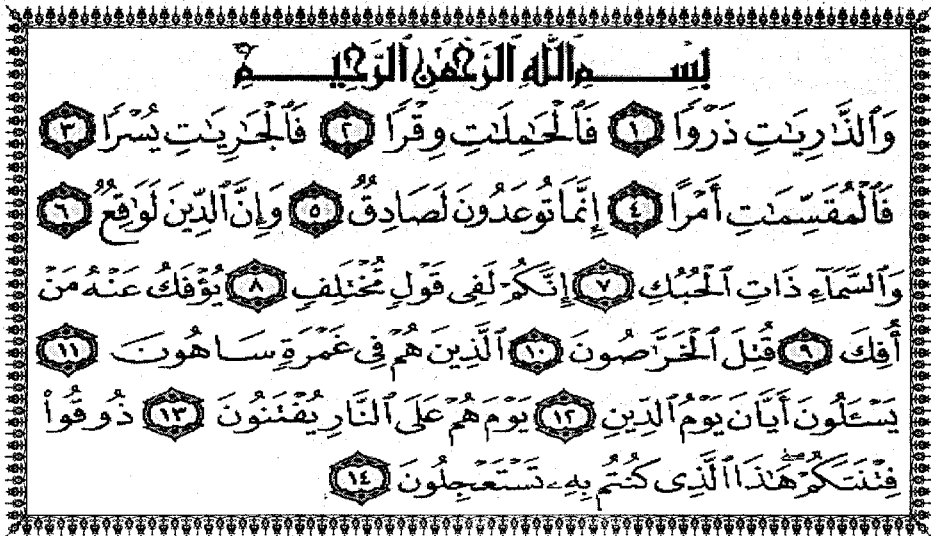 بِسْمِ ٱللَّهِ ٱلرَّحْمَٰنِ ٱلرَّحِيمِ
وَٱلذَّٰرِيَٰتِ ذَرْوًا ١ فَٱلْحَٰمِلَٰتِ وِقْرًا ٢ فَٱلْجَٰرِيَٰتِ يُسْرًا ٣
فَٱلْمُقَسِّمَٰتِ أَمْرًا ٤ إِنَّمَا تُوعَدُونَ لَصَادِقٌ ٥ وَإِنَّ ٱلدِّينَ لَوَٰقِعٌ ٦
وَٱلسَّمَآءِ ذَاتِ ٱلْحُبُكِ ٧ إِنَّكُمْ لَفِى قَوْلٍ مُّخْتَلِفٍ ٨ يُؤْفَكُ عَنْهُ مَنْ
أُفِكَ ٩ قُتِلَ ٱلْخَرَّٰصُونَ ١٠ ٱلَّذِينَ هُمْ فِى غَمْرَةٍ سَاهُونَ ١١
يَسْـَٔلُونَ أَيَّانَ يَوْمُ ٱلدِّينِ ١٢ يَوْمَ هُمْ عَلَى ٱلنَّارِ يُفْتَنُونَ ١٣ ذُوقُوا۟
فِتْنَتَكُمْ هَٰذَا ٱلَّذِى كُنتُم بِهِۦ تَسْتَعْجِلُونَ ١٤